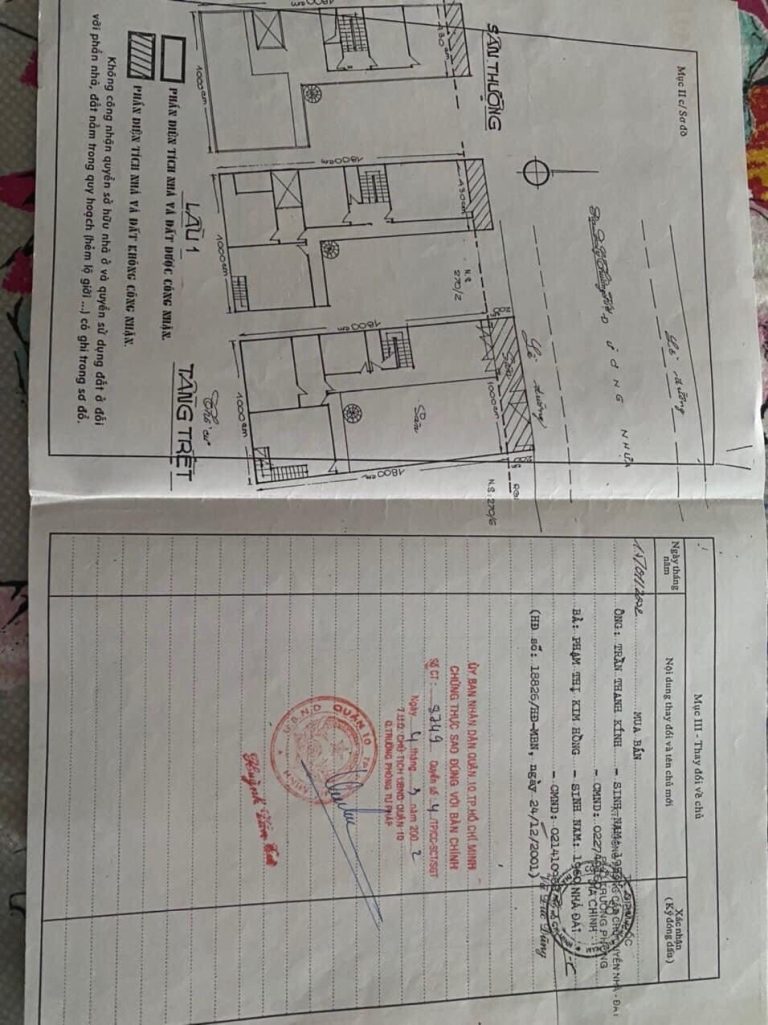 Mục II c/ Sơ đồ
Lề đường
ĐƯỜNG NHỰA
Lề đường
SÂN THƯỢNG
1800cm
430cm
1000cm
1800cm
430cm
1000cm
LẦU 1
N.S
270/2
1800cm
1000cm
Sân
Sân
1000cm
1800cm
N.S: 270/6
Thổ cư
TẦNG TRỆT
PHẦN DIỆN TÍCH NHÀ VÀ ĐẤT ĐƯỢC CÔNG NHẬN.
PHẦN DIỆN TÍCH NHÀ VÀ ĐẤT KHÔNG CÔNG NHẬN.
Không công nhận quyền sở hữu nhà ở và quyền sử dụng đất ở đối
với phần nhà, đất nằm trong quy hoạch (hẻm lộ giới ...) có ghi trong sơ đồ.
Mục III - Thay đổi về chủ
Ngày tháng
năm
Nội dung thay đổi và tên chủ mới
Xác nhận
(Ký đóng dấu)
MUA BÁN
ÔNG: TRẦN THANH KÍNH - SINH NĂM:
- CMND:
BÀ: PHẠM THỊ KIM HỒNG - SINH NĂM: 1960
- CMND:
(HĐ số: 18826/HĐ-MBN, ngày 24/12/2001)
ỦY BAN NHÂN DÂN QUẬN 10 TP HỒ CHÍ MINH
CHỨNG THỰC SAO ĐÚNG VỚI BẢN CHÍNH
Số CT: 8749 Quyển số 4 /TPCC-SCT/SGT
Ngày 4 tháng 3 năm 2002
TRƯỞNG PHÒNG TƯ PHÁP
U.B.N.D QUẬN 10